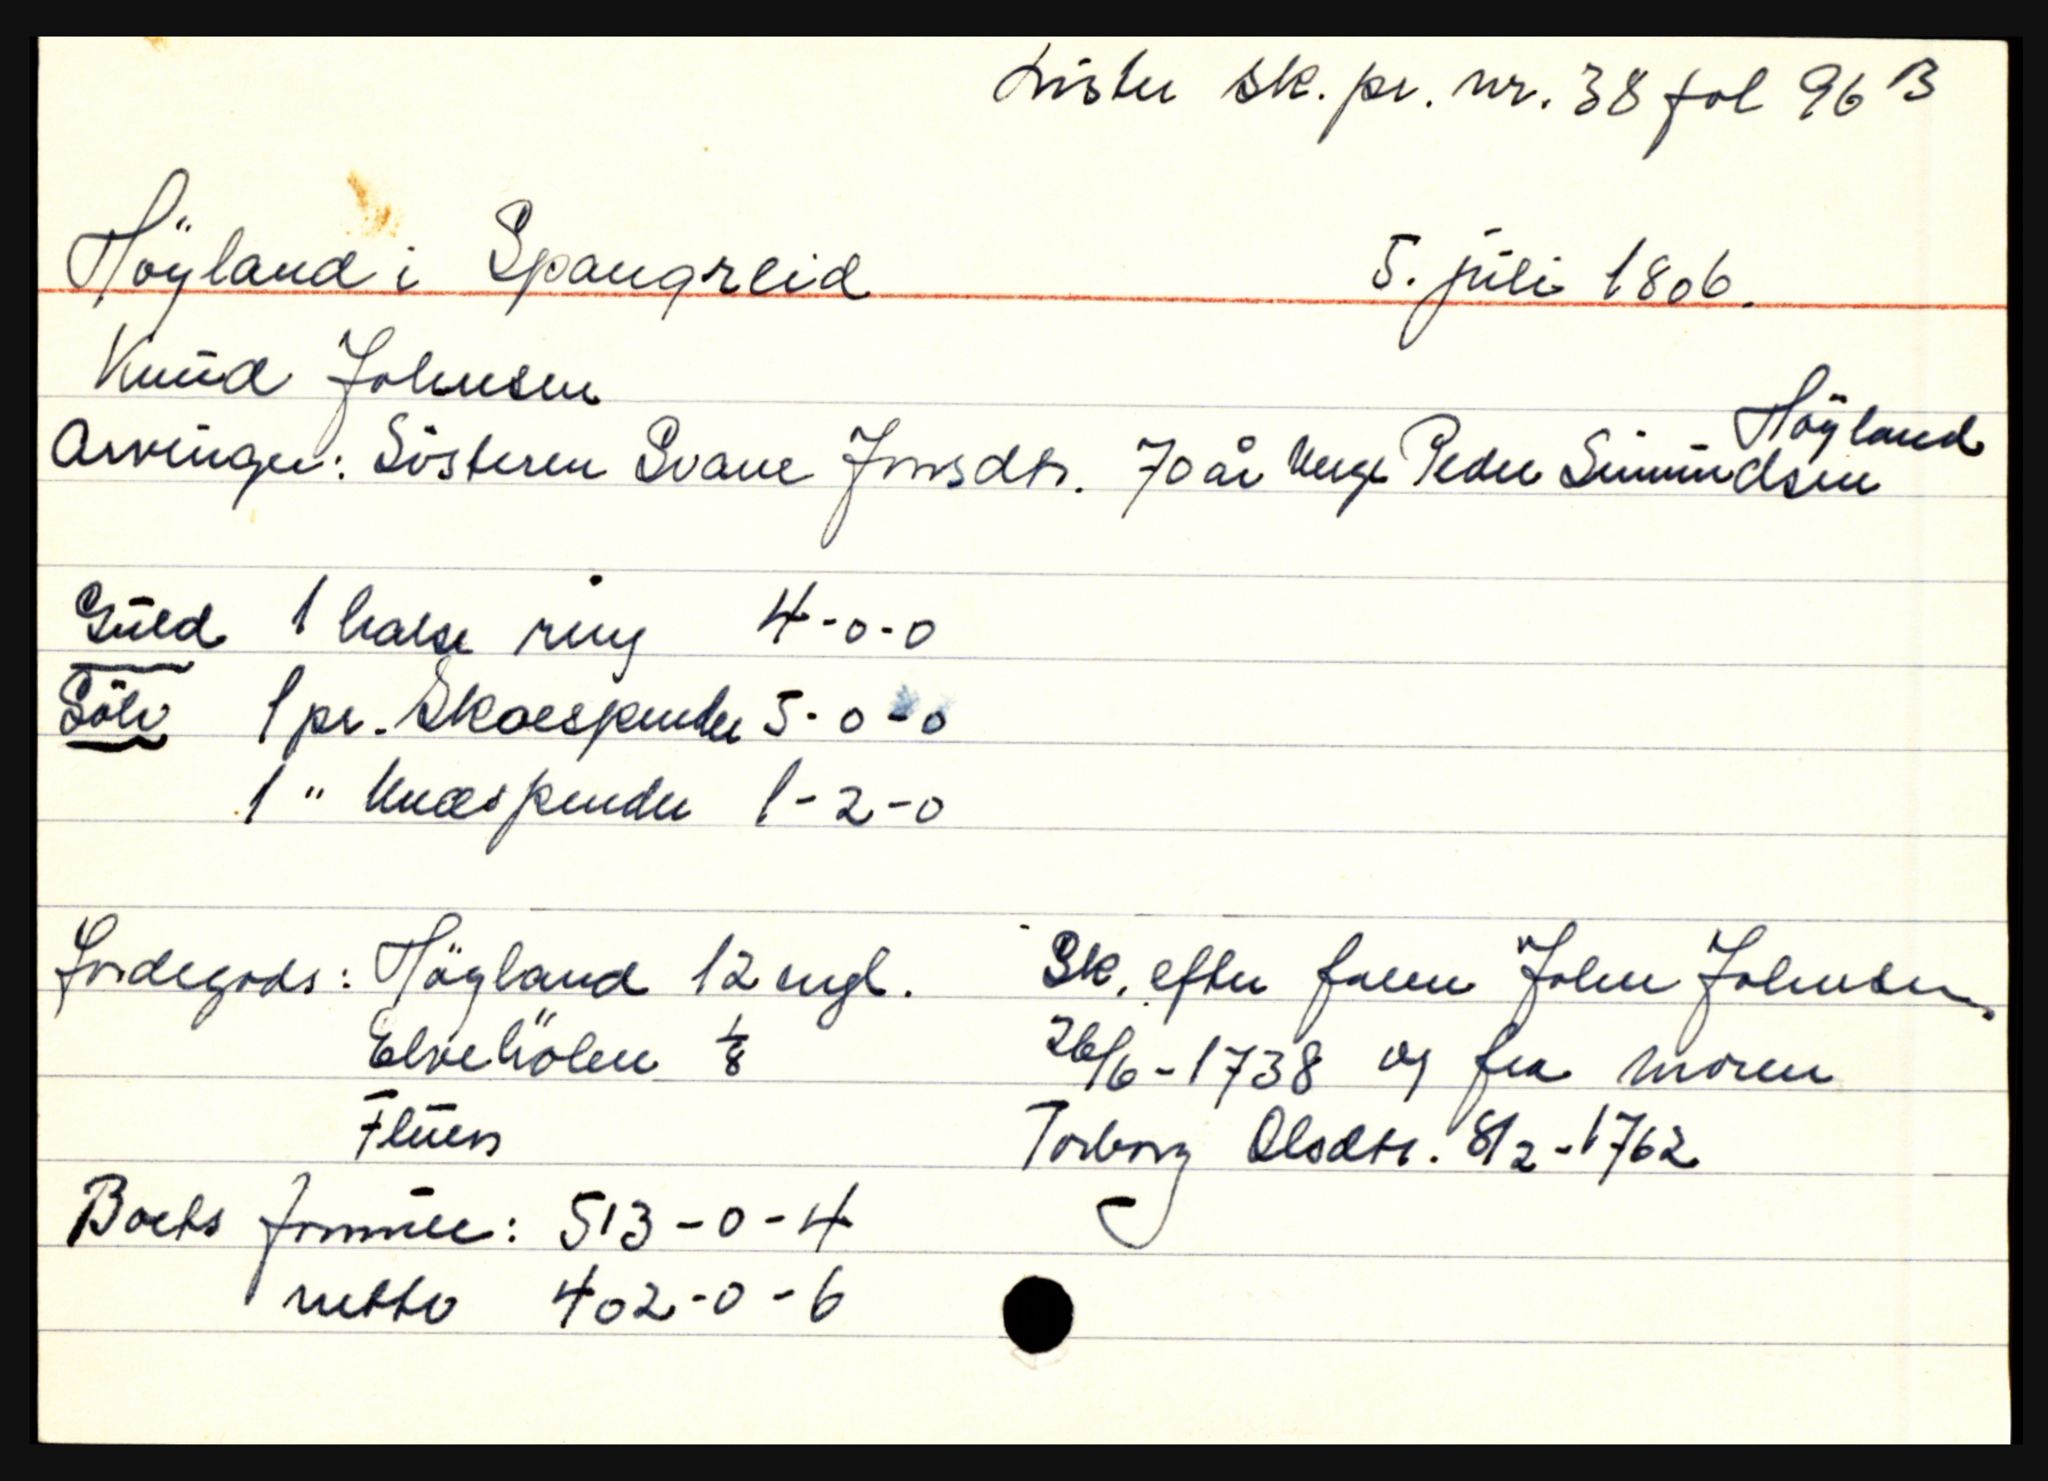 Lister sk. pr. nr. 38 fol 96 B
Höyland i Spangreid 5. juli 1806.
Knud Johnsen
Höyland
Arvinger: Sösteren Svane Jonsdtr. 70 år Verge Peder Simundsen
Guld 1 halse ring 4-0-0
Sölv 1 pr. Skoespender 5-0-0
1 " Knæspender 1-2-0
Jordegods: Höyland 12 engl. Sk. efter faren John Johnsen
Elvehölen 1/8 26/6-1738 og fra moren
Fluen Torborg Olsdtr. 8/2-1762
Boets formue: 513-0-4
netto 402-0-6